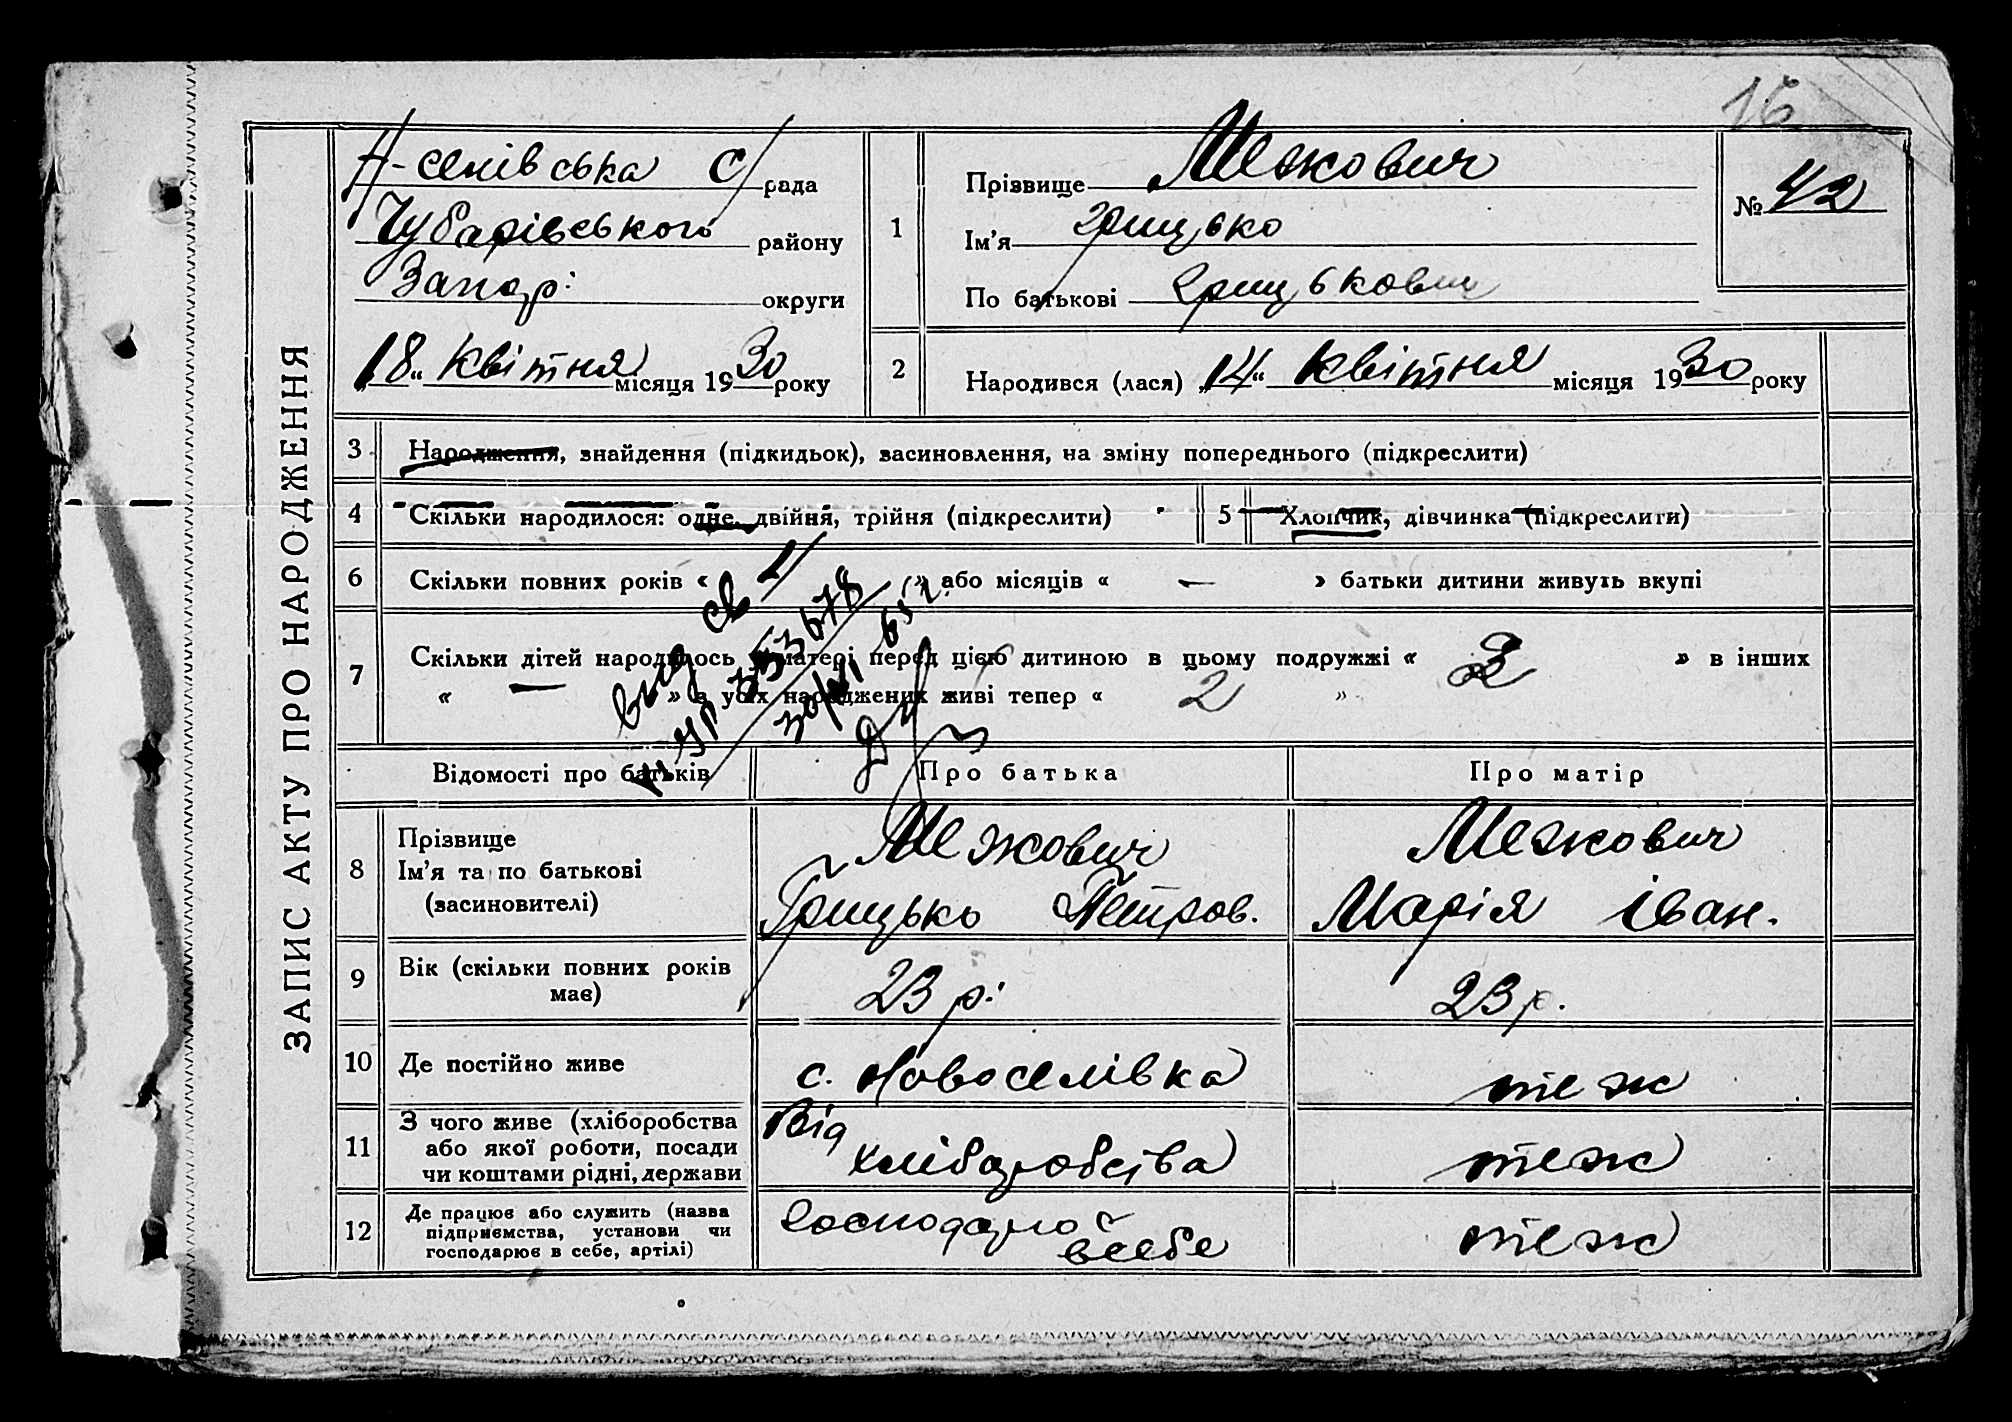 16
ЗАПИС АКТУ ПРО НАРОДЖЕННЯ
Н-селівська С/рада
Чубарівського району
Запор. округи
„18“ Квітня місяця 1930 року
1
Прізвище Межович
Ім'я Грицько
По батькові Грицькович
№ 42
2
Народився (лася) „14“ Квітня місяця 1930 року
3 Народження, знайдення (підкидьок), засиновлення, на зміну попереднього (підкреслити)
4 Скільки народилося: одне, двійня, трійня (підкреслити)
5 Хлопчик, дівчинка (підкреслити)
6 Скільки повних років « » або місяців « — » батьки дитини живуть вкупі
7 Скільки дітей народилось у матері перед цією дитиною в цьому подружжі « 2 » в інших
« — » в усіх народжених живі тепер « 2 »
353678
Відомості про батьків Про батька Про матір
8 Прізвище
Ім'я та по батькові
(засиновителі)
Межович
Грицько Петров.
Межович
Марія Іван.
9 Вік (скільки повних років
має)
23 р.
23 р.
10 Де постійно живе
с. Новоселівка
теж
11 З чого живе (хліборобства
або якої роботи, посади
чи коштами рідні, держави
Від
хліборобства
теж
12 Де працює або служить (назва
підприємства, установи чи
господарює в себе, артілі)
господарює
в себе
теж